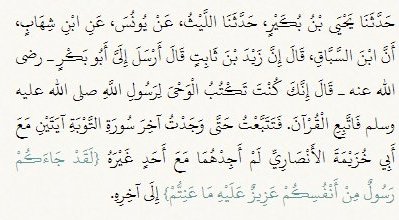 حَدَّثَنَا يَحْيَى بْنُ بُكَيْرٍ، حَدَّثَنَا اللَّيْثُ، عَنْ يُونُسَ، عَنِ ابْنِ شِهَابٍ،
أَنَّ ابْنَ السَّبَّاقِ، قَالَ إِنَّ زَيْدَ بْنَ ثَابِتٍ قَالَ أَرْسَلَ إِلَىَّ أَبُو بَكْرٍ ـ رضى
الله عنه ـ قَالَ إِنَّكَ كُنْتَ تَكْتُبُ الْوَحْىَ لِرَسُولِ اللَّهِ صلى الله عليه
وسلم فَاتَّبِعِ الْقُرْآنَ‏.‏ فَتَتَبَّعْتُ حَتَّى وَجَدْتُ آخِرَ سُورَةِ التَّوْبَةِ آيَتَيْنِ مَعَ
أَبِي خُزَيْمَةَ الأَنْصَارِيِّ لَمْ أَجِدْهُمَا مَعَ أَحَدٍ غَيْرَهُ ‏{‏لَقَدْ جَاءَكُمْ
رَسُولٌ مِنْ أَنْفُسِكُمْ عَزِيزٌ عَلَيْهِ مَا عَنِتُّمْ‏}‏ إِلَى آخِرِهِ‏.‏